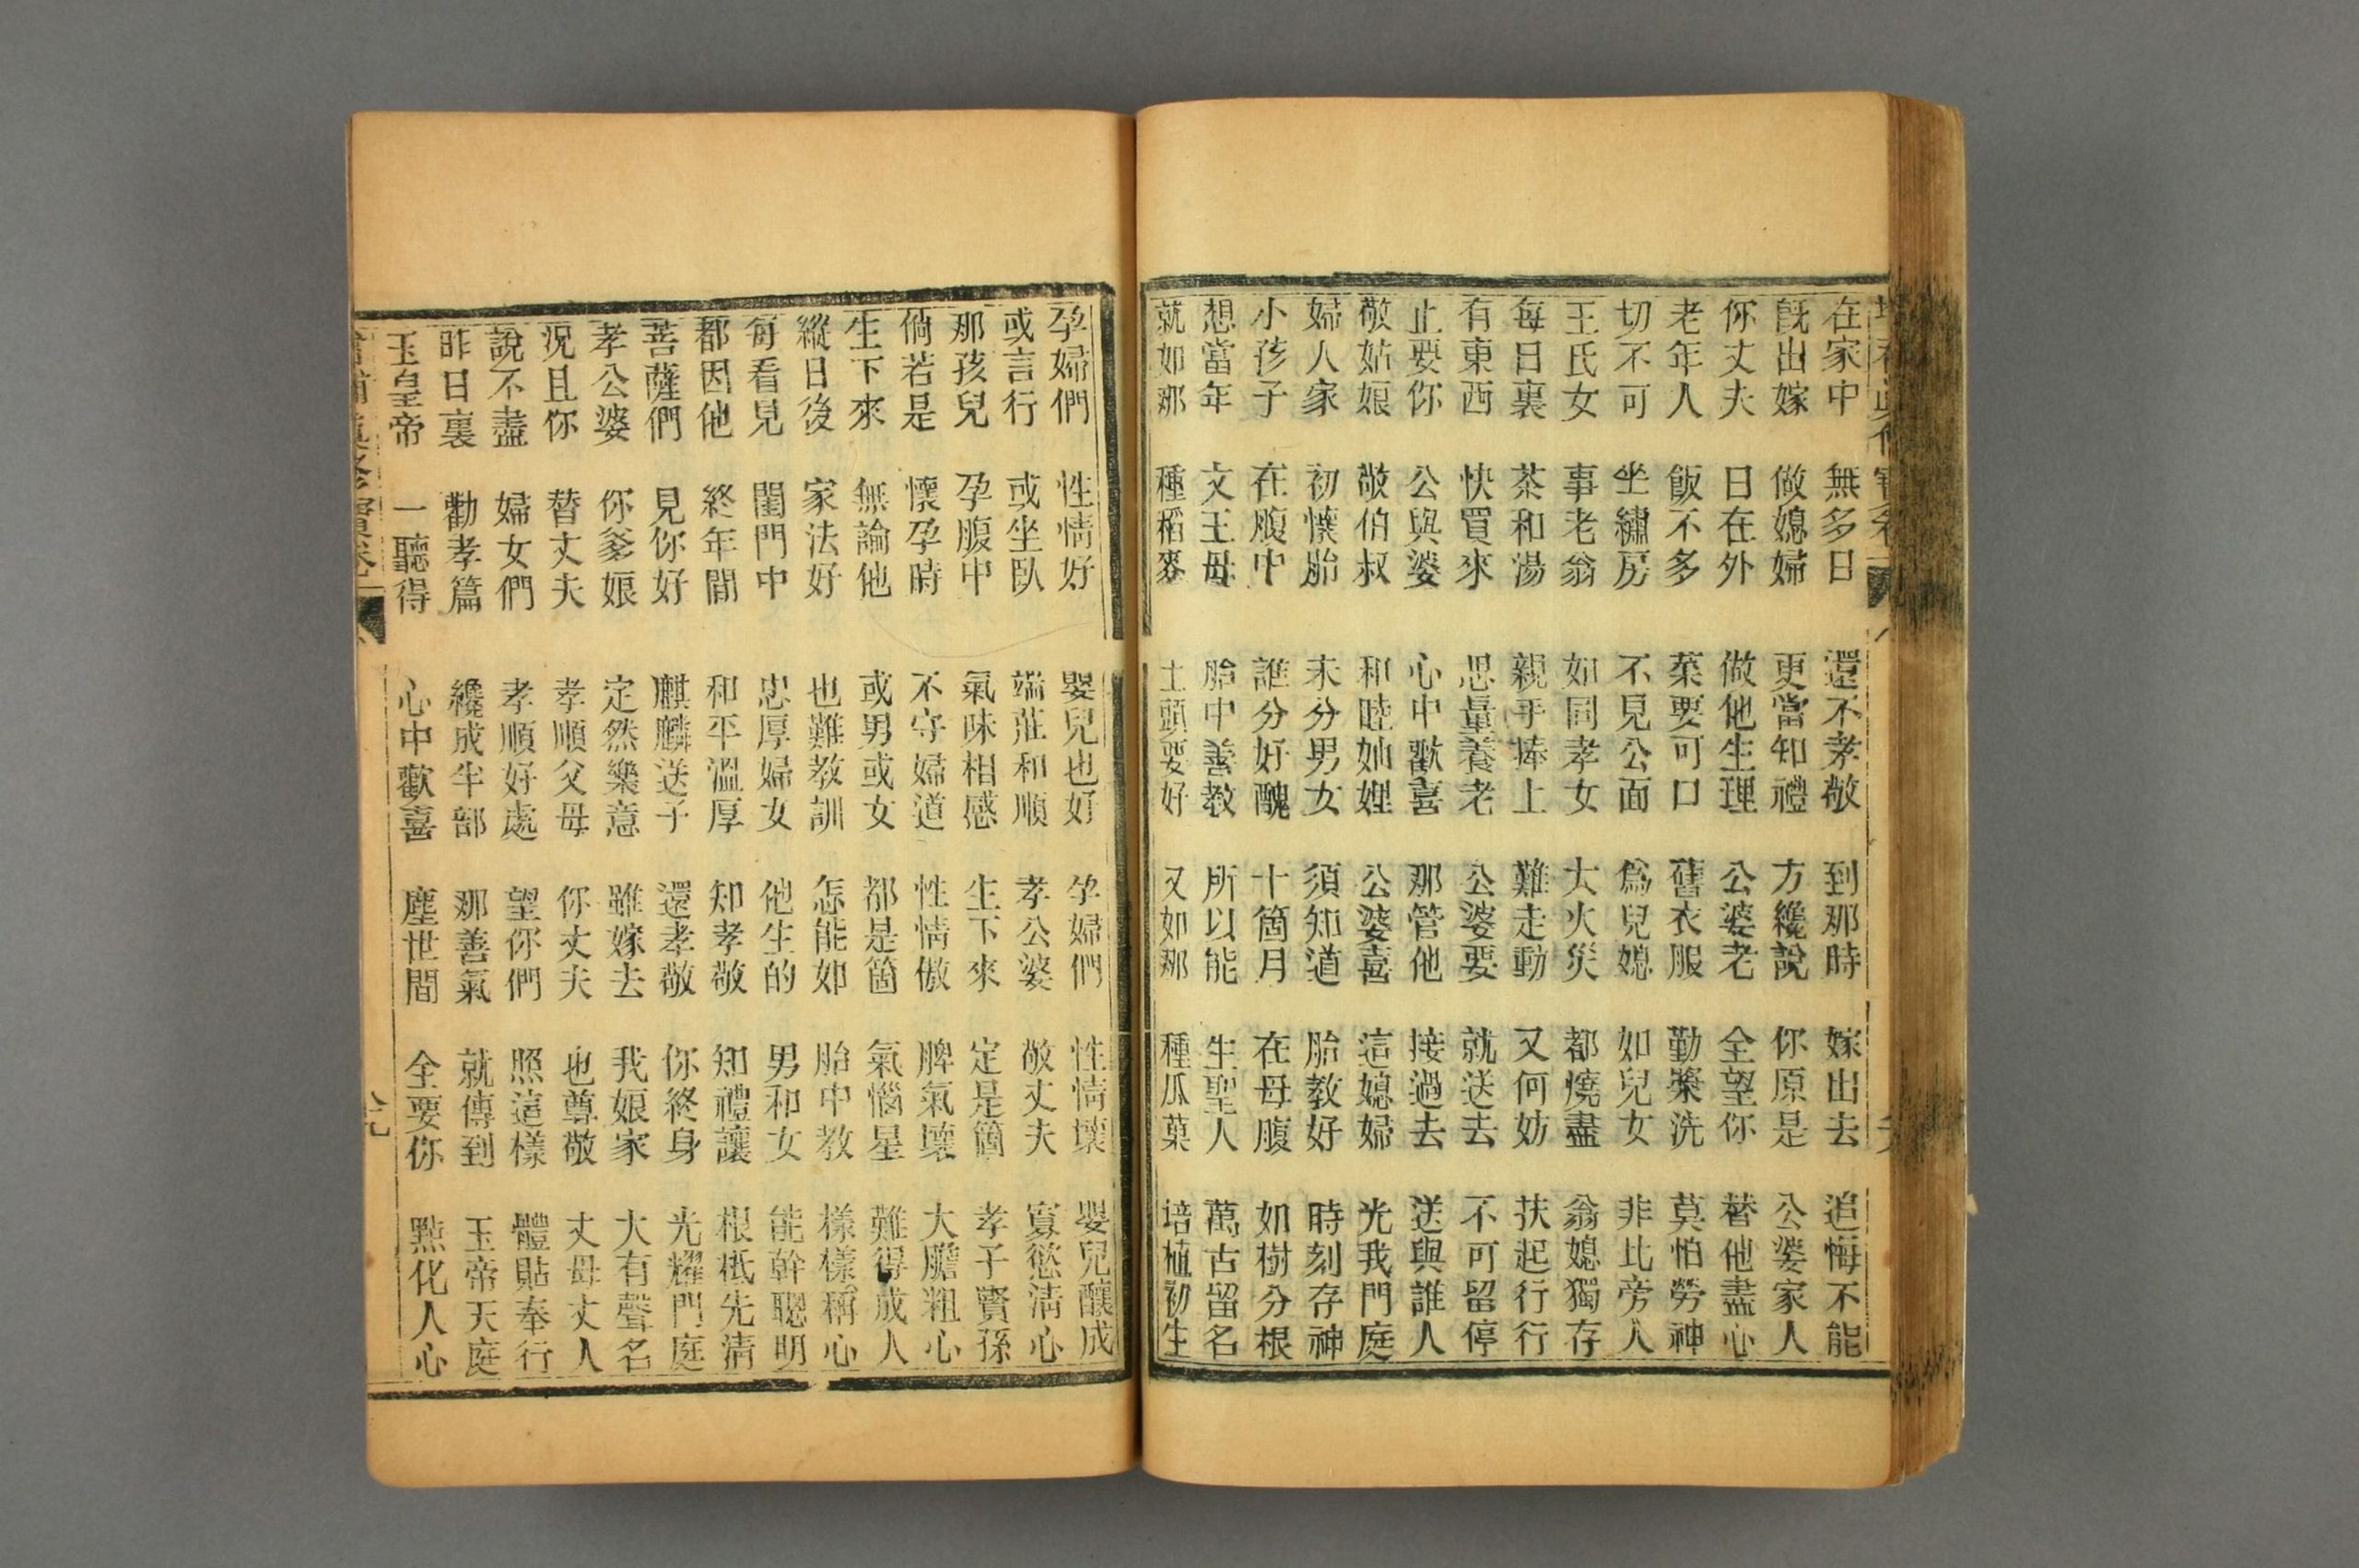 在家中 無多日 還不孝敬 到那時 嫁出去 追悔不能
旣出嫁 做媳婦 更當知禮 方纔說 你原是 公婆家人
你丈夫 日在外 做他生理 公婆老 全望你 替他盡心
老年人 飯不多 菜要可口 舊衣服 勤漿洗 莫怕勞神
切不可 坐繡房 不見公面 爲兒媳 如兒女 非比旁人
王氏女 事老翁 如同孝女 大火災 都燒盡 翁媳獨存
每日裏 茶和湯 親手捧上 難走動 又何妨 扶起行行
有東西 快買來 思量養老 公婆要 就送去 不可留停
止要你 公與婆 心中歡喜 那管他 接過去 送與誰人
敬姑娘 敬伯叔 和睦妯娌 公婆喜 這媳婦 光我門庭
婦人家 初懷胎 未分男女 須知道 胎教好 時刻存神
小孩子 在腹中 誰分好醜 十箇月 在母腹 如樹分根
想當年 文王母 胎中善教 所以能 生聖人 萬古留名
就如那 種稻麥 土頭要好 又如那 種瓜菓 培植初生
孕婦們 性情好 嬰兒也好 孕婦們 性情壞 嬰兒釀成
或言行 或坐臥 端莊和順 孝公婆 敬丈夫 寡慾淸心
那孩兒 孕腹中 氣味相感 生下來 定是箇 孝子賢孫
倘若是 懷孕時 不守婦道 性情傲 脾氣壞 大膽粗心
生下來 無論他 或男或女 都是箇 氣惱星 難得成人
縱日後 家法好 也難教訓 怎能如 胎中教 樣樣稱心
每看見 閨門中 忠厚婦女 他生的 男和女 能幹聰明
都因他 終年間 和平溫厚 知孝敬 知禮讓 根柢先淸
菩薩們 見你好 麒麟送子 還孝敬 你終身 光耀門庭
孝公婆 你爹娘 定然樂意 雖嫁去 我娘家 大有聲名
況且你 替丈夫 孝順父母 你丈夫 也尊敬 丈母丈人
說不盡 婦女們 孝順好處 望你們 照這樣 體貼奉行
昨日裏 勸孝篇 纔成半部 那善氣 就傳到 玉帝天庭
玉皇帝 一聽得 心中歡喜 塵世間 全要你 點化人心